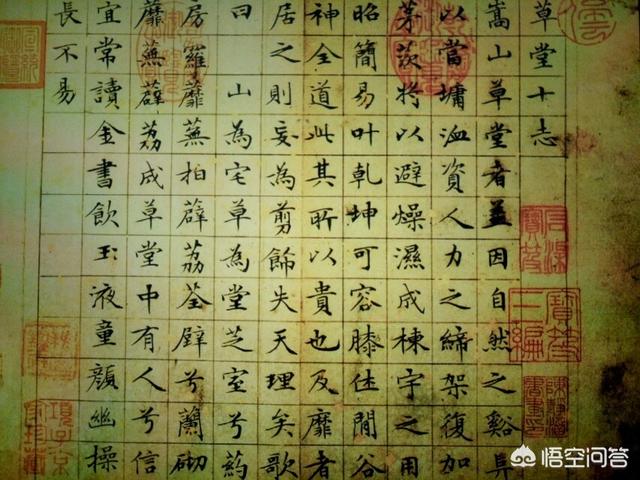 草堂十志
嵩山草堂者盖因自然之谿阜
以當墉洫資人力之締架復加
茅茨將以避燥濕成棟宇之用
昭簡易叶乾坤可容膝休閒谷
神全道此其所以貴也及靡者
居之則妄為剪飾失天理矣歌
曰 山為宅草為堂芝室兮葯
房羅蘼蕪拍薜荔荃壁兮蘭砌
蘼蕪薜荔成草堂中有人兮信
宜常讀金書飲玉液童顏幽操
長不易
寶笈
三編
悟空问答